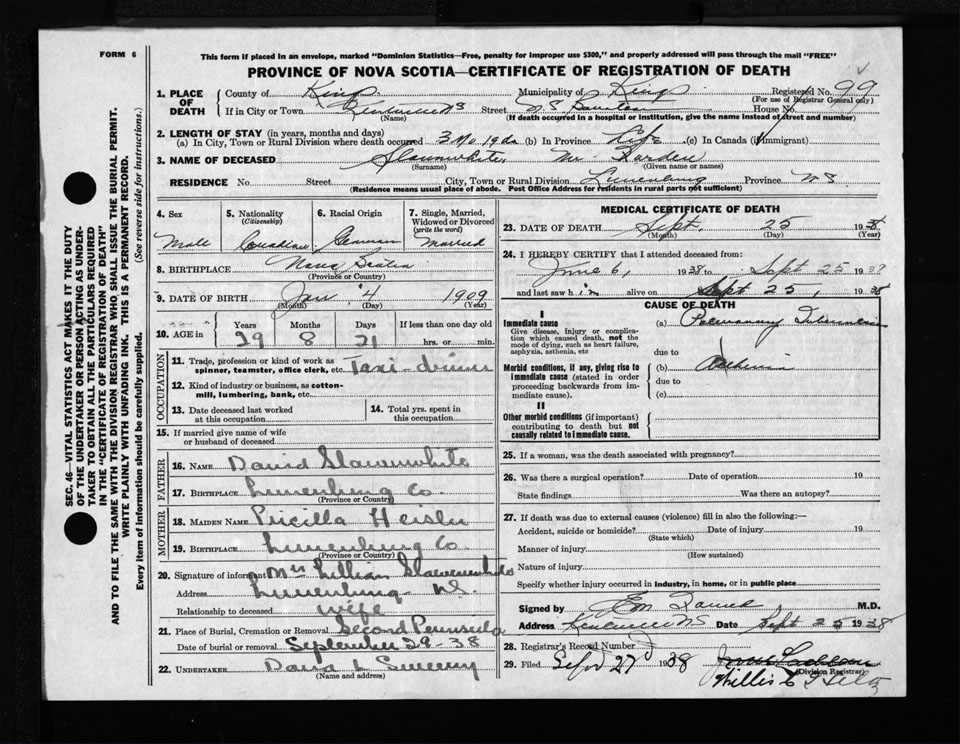 FORM 6
This form if placed in an envelope, marked "Dominion Statistics—Free, penalty for improper use $300," and properly addressed will pass through the mail "FREE"
PROVINCE OF NOVA SCOTIA—CERTIFICATE OF REGISTRATION OF DEATH
SEC. 46—VITAL STATISTICS ACT MAKES IT THE DUTY
OF THE UNDERTAKER OR PERSON ACTING AS UNDER-
TAKER TO OBTAIN ALL THE PARTICULARS REQUIRED
IN THE "CERTIFICATE OF REGISTRATION OF DEATH"
AND TO FILE THE SAME WITH THE DIVISION REGISTRAR WHO SHALL ISSUE THE BURIAL PERMIT.
WRITE PLAINLY WITH UNFADING INK. THIS IS A PERMANENT RECORD.
Every item of information should be carefully supplied. (See reverse side for instructions.)
1. PLACE OF DEATH County of Kings Municipality of Kings Registered No. 99
(For use of Registrar General only)
If in City or Town Street N.S. House No.
(Name) (If death occurred in a hospital or institution, give the name instead of street and number)
2. LENGTH OF STAY (in years, months and days)
(a) In City, Town or Rural Division where death occurred 3 Mo 19 da (b) In Province Life (c) In Canada (if immigrant)
3. NAME OF DECEASED Slauenwhite, Mr.
(Surname) (Given name or names)
RESIDENCE No. Street City, Town or Rural Division Lunenburg Province N.S.
(Residence means usual place of abode. Post Office Address for residents in rural parts not sufficient)
4. Sex
Male
5. Nationality
(Citizenship)
Canadian
6. Racial Origin
German
7. Single, Married,
Widowed or Divorced
(write the word)
Married
8. BIRTHPLACE Nova Scotia
(Province or Country)
9. DATE OF BIRTH Jan. 4 1909
(Month) (Day) (Year)
10. AGE in Years Months Days If less than one day old
29 8 21 hrs. or min.
OCCUPATION
11. Trade, profession or kind of work as
spinner, teamster, office clerk, etc. Taxi-driver
12. Kind of industry or business, as cotton-
mill, lumbering, bank, etc.
13. Date deceased last worked
at this occupation
14. Total yrs. spent in
this occupation
15. If married give name of wife
or husband of deceased
FATHER
16. NAME David Slauenwhite
17. BIRTHPLACE Lunenburg Co.
(Province or Country)
MOTHER
18. MAIDEN NAME Pricilla Heisler
19. BIRTHPLACE Lunenburg Co.
(Province or Country)
20. Signature of informant Mrs Lillian Slauenwhite
Address Lunenburg N.S.
Relationship to deceased wife
21. Place of Burial, Cremation or Removal Second Peninsula
Date of burial or removal September 29-38
22. UNDERTAKER David L Sweeny
(Name and address)
MEDICAL CERTIFICATE OF DEATH
23. DATE OF DEATH Sept. 25 1938
(Month) (Day) (Year)
24. I HEREBY CERTIFY that I attended deceased from:
June 6, 1938 to Sept 25 1938
and last saw him alive on Sept 25, 1938
CAUSE OF DEATH
I
Immediate cause
Give disease, injury or complica-
tion which caused death, not the
mode of dying, such as heart failure,
asphyxia, asthenia, etc
(a) Pulmonary
due to
Morbid conditions, if any, giving rise to
immediate cause (stated in order
proceeding backwards from im-
mediate cause).
(b)
due to
(c)
II
Other morbid conditions (if important)
contributing to death but not
causally related to immediate cause.
25. If a woman, was the death associated with pregnancy?
26. Was there a surgical operation? Date of operation 19
State findings Was there an autopsy?
27. If death was due to external causes (violence) fill in also the following:—
Accident, suicide or homicide? Date of injury 19
(State which)
Manner of injury
(How sustained)
Nature of injury
Specify whether injury occurred in industry, in home, or in public place
Signed by M.D.
Address Kentville NS Date Sept 25 1938
28. Registrar's Record Number
29. Filed Sept 27 1938
(Division Registrar)
Willis